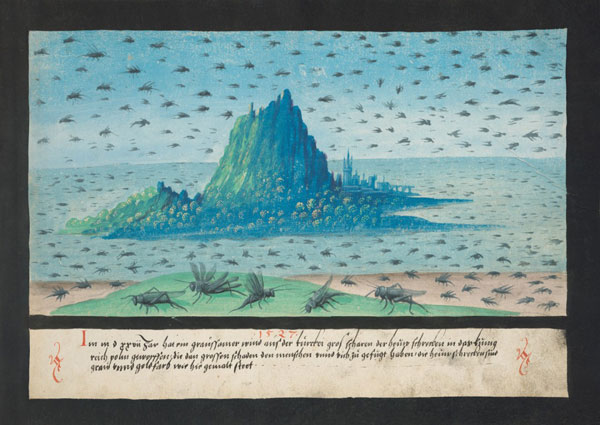 1527
Im m d xxvii Jar hat ein graussamer wind aus der türckei gros scharen der heuschrecken in das küng
reich poln geworffen, die dan grossen schaden den menschen unnd vich zu gefügt haben. die heuschrecken sind
graw unnd goldfarb wie hie gemalt stett.